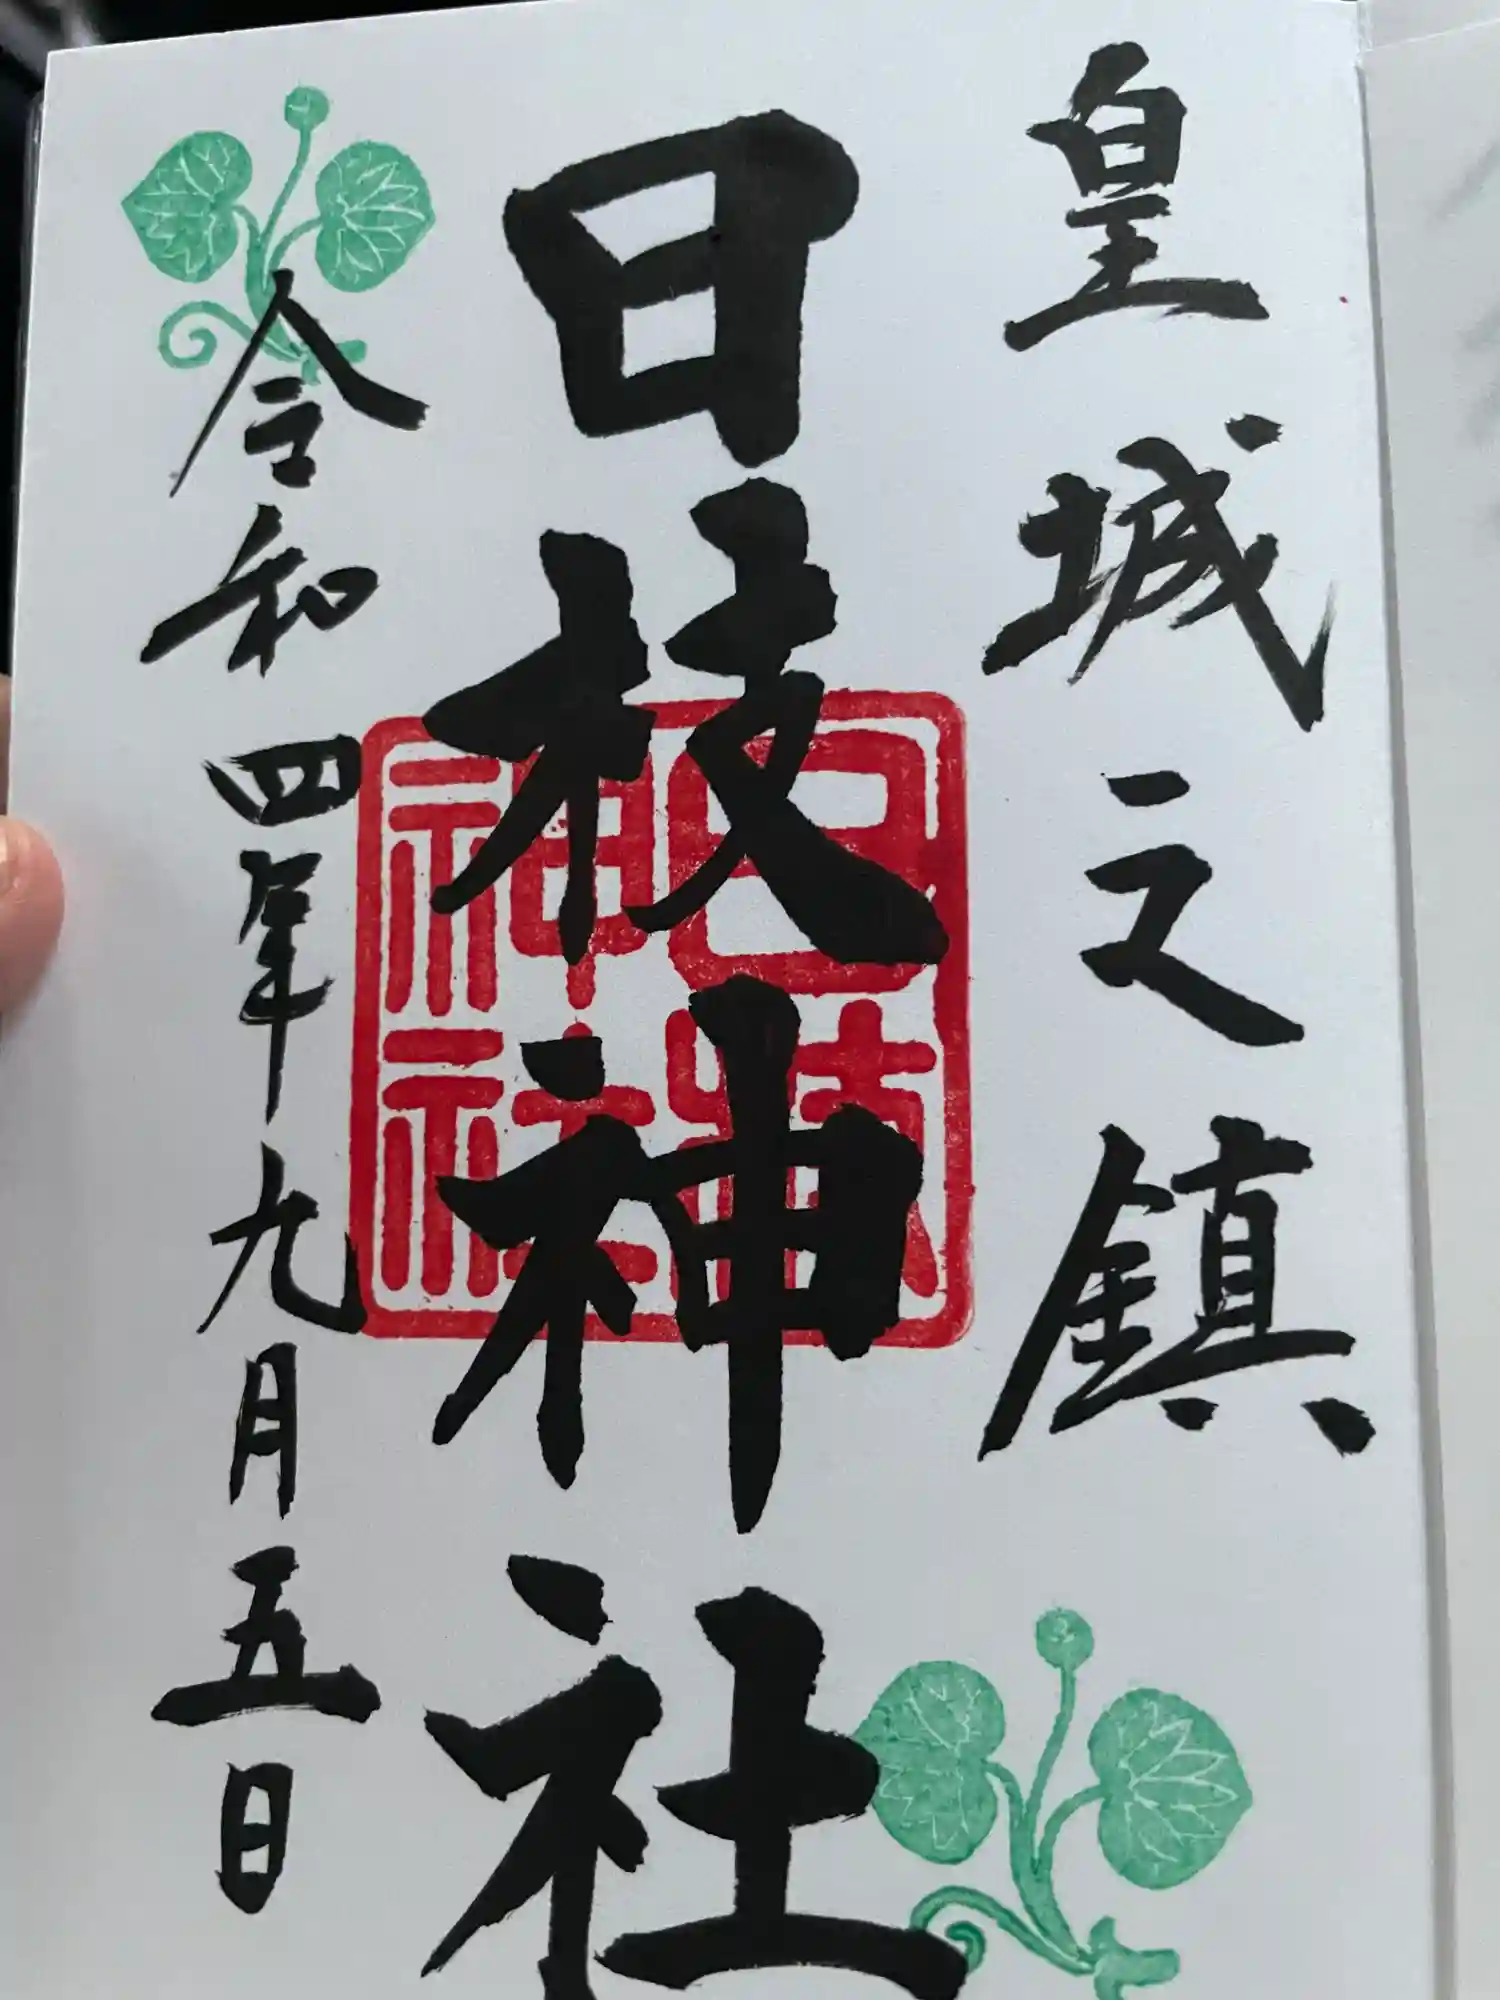 皇城之鎮
日枝神社
日枝神社
令和四年九月五日